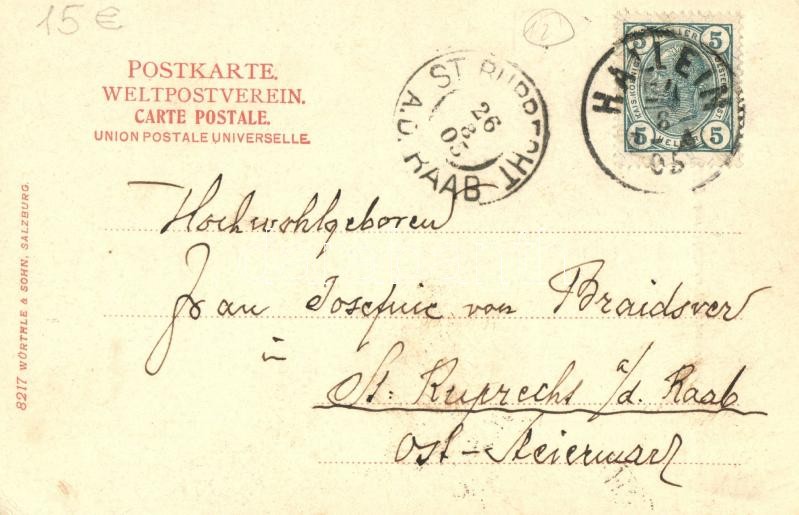 15 €
12
POSTKARTE.
WELTPOSTVEREIN.
CARTE POSTALE.
UNION POSTALE UNIVERSELLE.
ST. RUPRECHT A.D. RAAB
26
8
05
HALLEIN
8
05
5 HELLER 5
5 HELLER 5
Hochwohlgeboren
Frau Josefine von Braidsver
in
St. Ruprecht a/d. Raab
Ost-Steiermark
8217 WÜRTHLE & SOHN, SALZBURG.